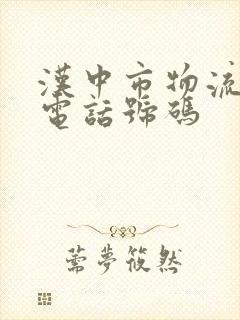 漢中市物流
電話號碼
薷夢筱然